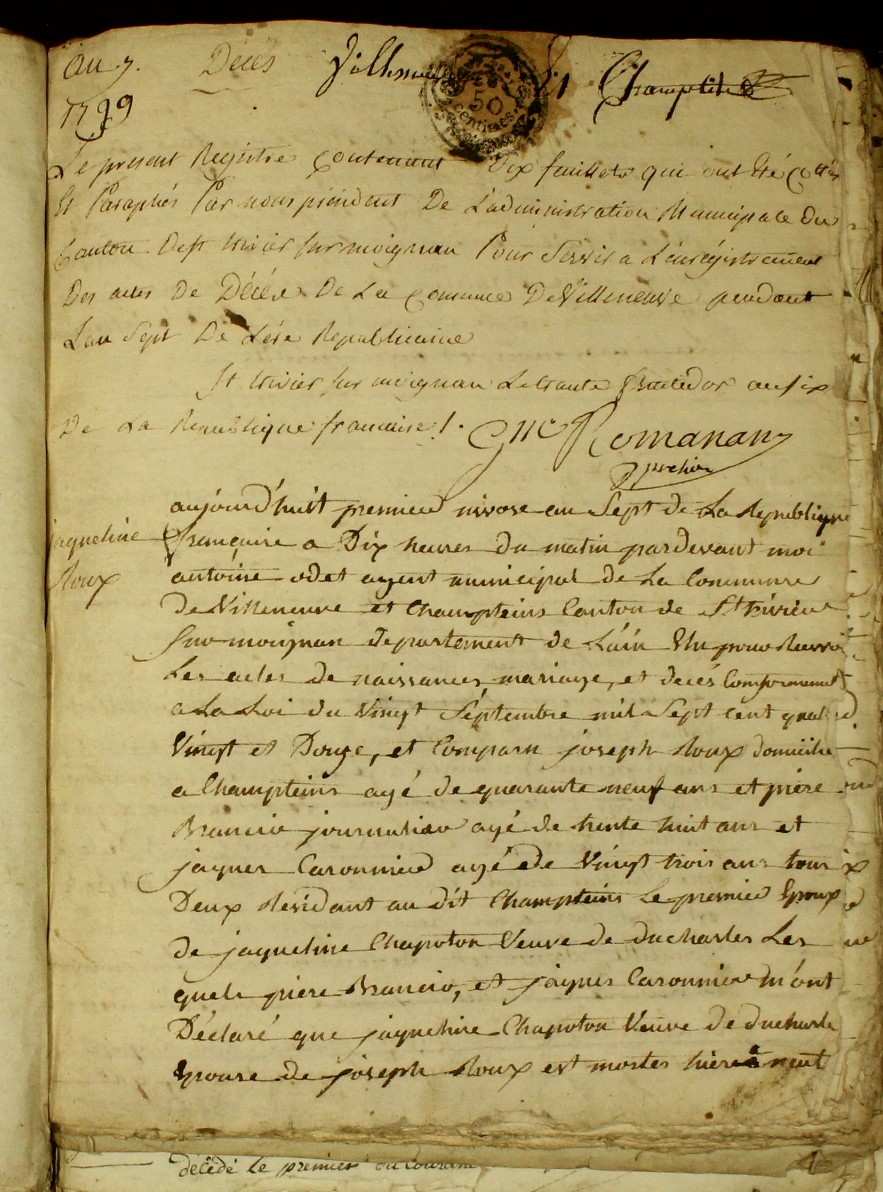 an 7. Décès Villeneuve Et Champteins
1799
50 centimes
Le present Registre contenant dix feuillets qui ont été cottés
Et Paraphés Par nous président De L'administration Municipale du
Canton De St trivier sur moignan Pour Servir a L'enrégistrement
Des actes De Décès De La commune De Villeneuve pendant
L'an Sept De L'ére Republicaine
St trivier sur moignan Le trente fructidor an six
De La Republique francaise !. Gme Romanan
jaqueline Roux
aujourd'huit premied nivose an Sept de La Republique
francaise a Dix heures du matin pardevant moi
antoine odet agent municipal de La Commune
De Villeneuve et Champteins Canton de St trivier
Sur moignan Departement de L'ain Elu pour
Les actes de naissances, mariage, et decés Conformement
a La Loi du Vingt Séptembre mil Sept cent quatre
Vingt et Douze, et Comparu joseph Roux domicilie
a Champteins agé de quarante neuf ans et piére
Brancio journalier agé de trente huit ans et
jaques Caronnied agé de Vingt trois ans tous
Deux Résidant au dit Champteins Le premied Epoux
de jaqueline Chapoton Veuve de ducharles Les
quels piere Brancio, et jaques Caronnier m'ont
Déclaré que jaqueline Chapoton Veuve de ducharle
Epouse de joseph Roux est mortes hiére a neuf
décédé Le premier du courant